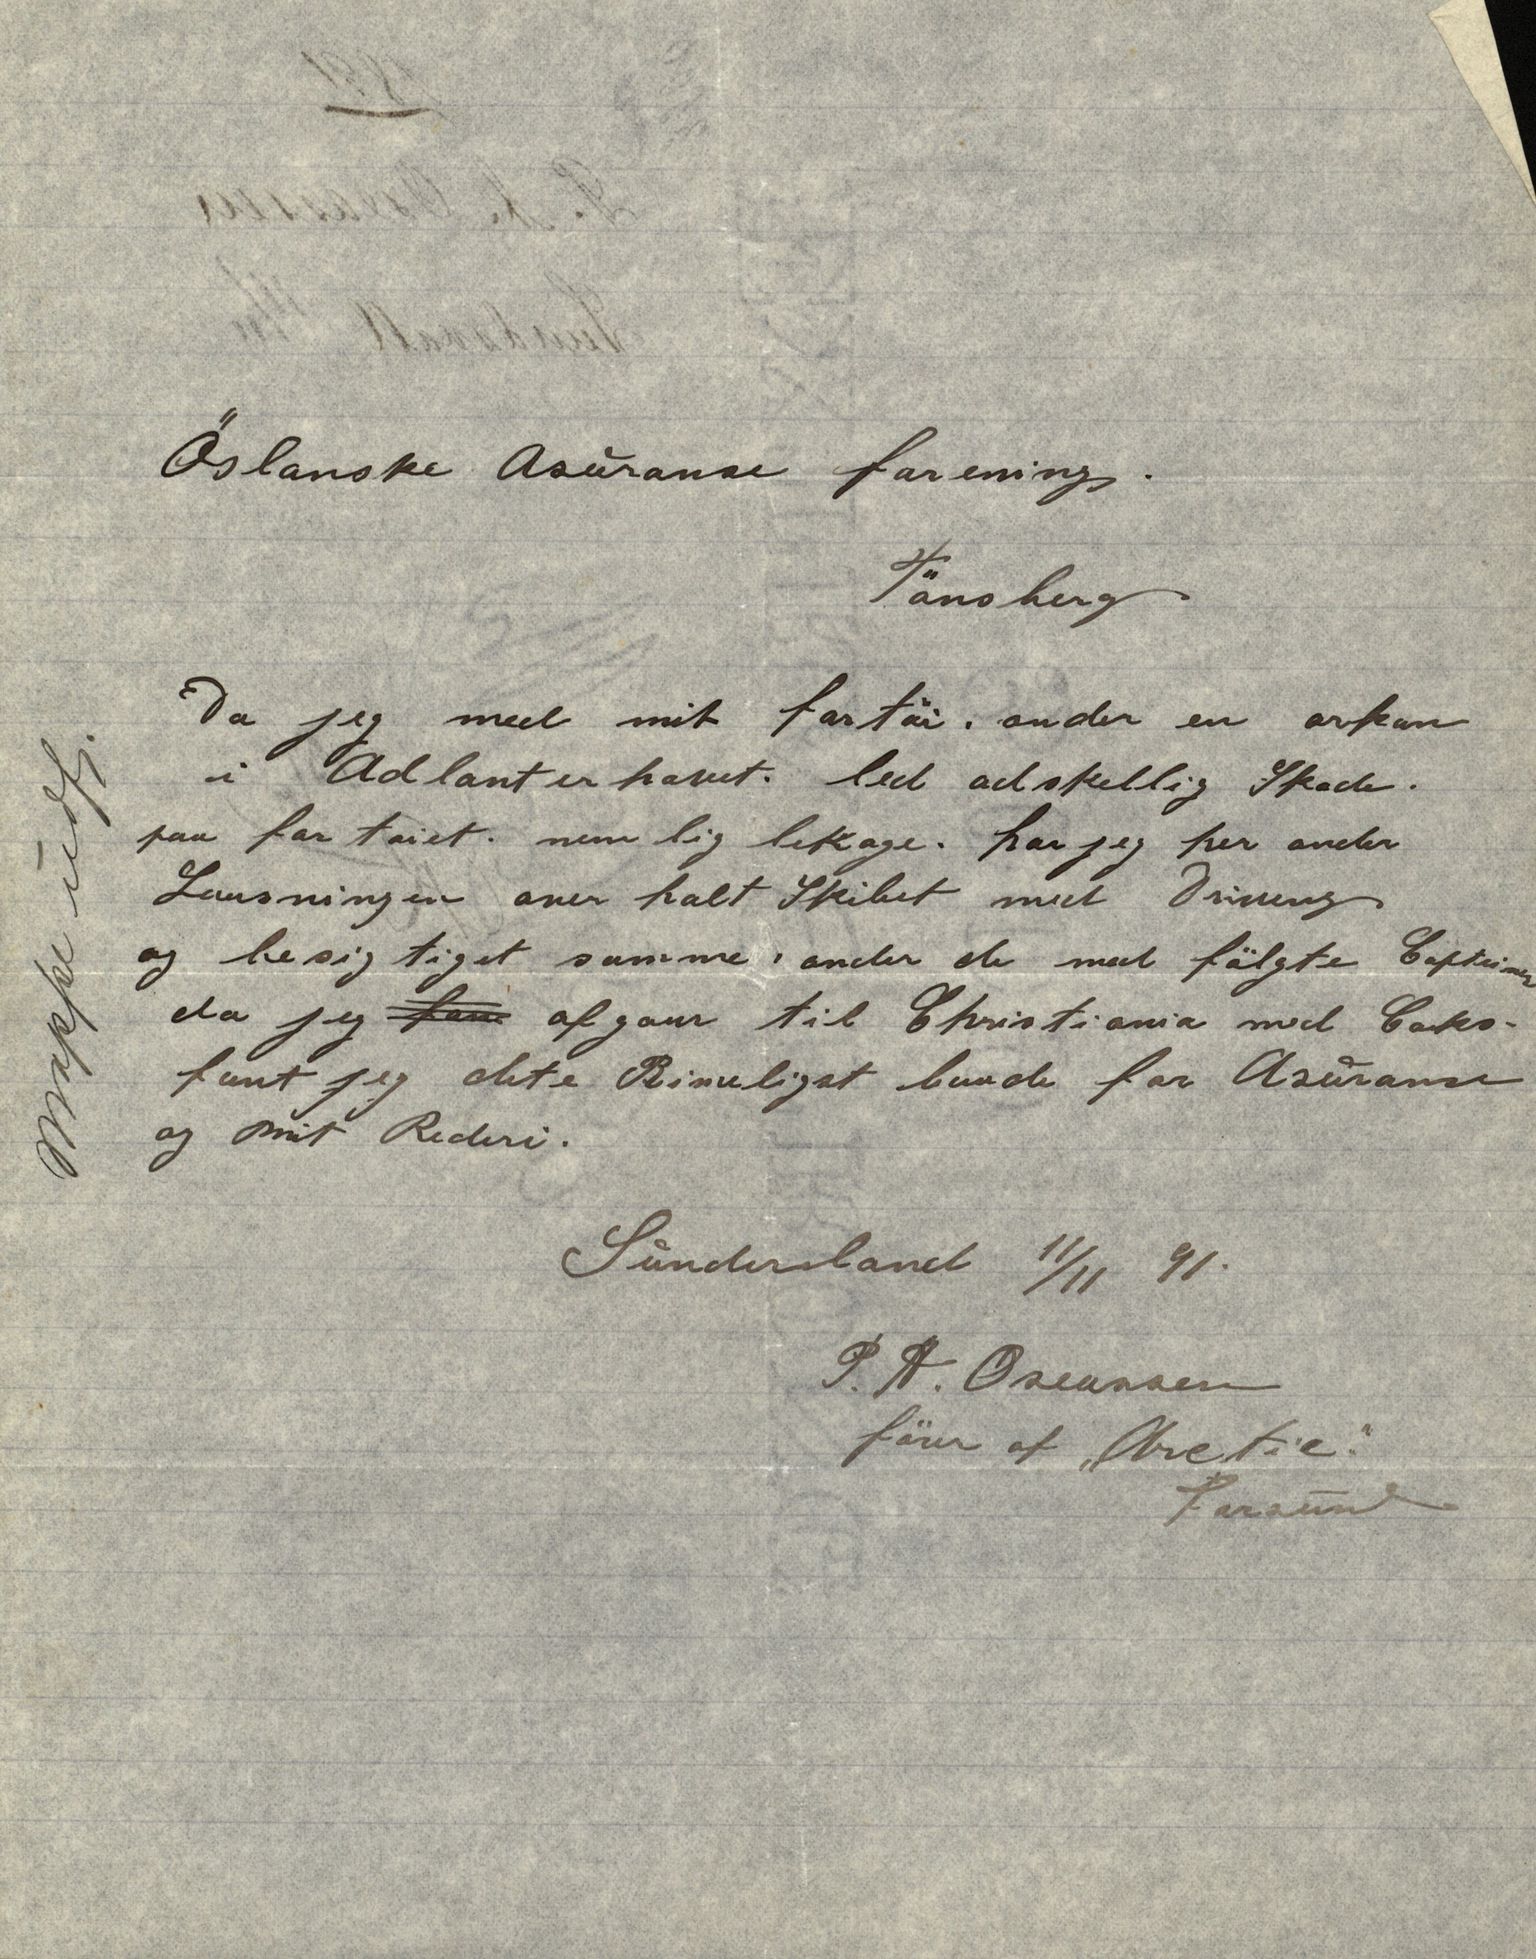 Öslanske Asŭranse farening.
Tönsberg
Da jeg med mit fartöi. onder en orkan
i Adlanterhavet. led adskellig Skade.
paa fartöiet. nemlig lekage. har jeg her onder
Lausningen overhalt Skibet med Driveng
og besigtiget samme, onder de med fölgte
da jeg afgaar til Christiania med Caks-
fant jeg dete Rimeligst baade for Asŭranse
og mit Rederi.
Sŭndersland 11/11 91.
P. A. Oseassen
förer af „Arctic"
Farsŭnd
Mappe ŭdfj.
1891
Sundswall 11/11